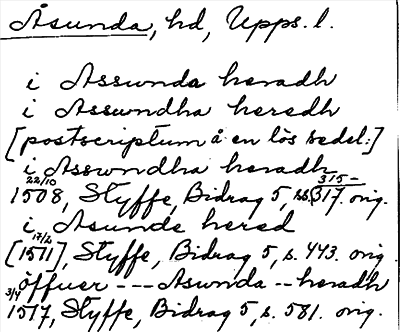 Åsunda, hd, Upps. l.
i Asswnda heradh
i Assundha heredh
[postscriptum å en lös sedel:]
i Asswndha heradh
22/10 315-
1508, Styffe, Bidrag 5, ss. 317. orig.
i Asunde hered
17/2
[1511], Styffe, Bidrag 5, s. 443. orig
öffuer --- Asunda -- heradh
3/4 1517, Styffe, Bidrag 5, s. 581. orig.